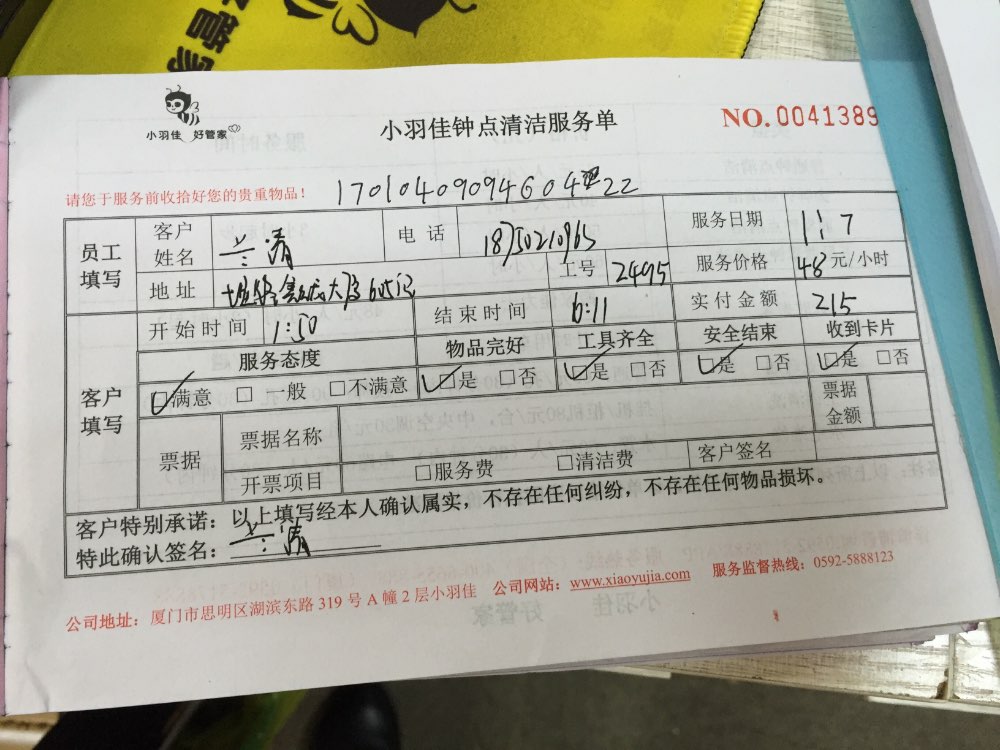 好管家
小羽佳 好管家
小羽佳钟点清洁服务单
NO. 0041389
请您于服务前收拾好您的贵重物品！
员工填写 客户姓名 兰清 电话 18750210965 服务日期 1:7
地址 大厦605 工号 2495 服务价格 48元/小时
客户填写 开始时间 1:50 结束时间 6:11 实付金额 215
服务态度 物品完好 工具齐全 安全结束 收到卡片
☑满意 □一般 □不满意 ☑是 □否 ☑是 □否 ☑是 □否 ☑是 □否
票据 票据名称 票据金额
开票项目 □服务费 □清洁费 客户签名
客户特别承诺：以上填写经本人确认属实，不存在任何纠纷，不存在任何物品损坏。
特此确认签名：兰清
公司地址：厦门市思明区湖滨东路 319 号 A 幢 2 层小羽佳 公司网站：www.xiaoyujia.com 服务监督热线：0592-5888123